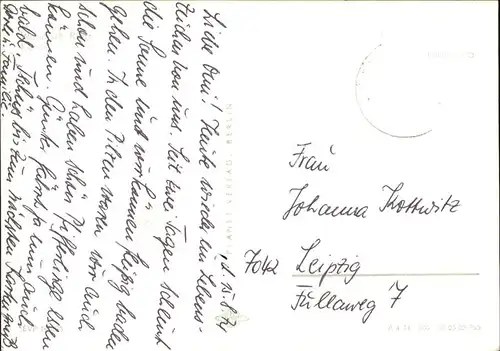 , d. 15.8.74
Liebe Omi! Heute wieder ein Lebens-
zeichen von uns. Seit zwei Tagen scheint
die Sonne und wir können fleißig baden
gehen. In den Pilzen waren wir auch
schon und haben schon Pfifferlinge essen
können. Günter fährt ja nun auch
bald. Tschüs bis zum nächsten Kartengruß
Familie
PLANET-VERLAG BERLIN
Frau
Johanna Kottwitz
7042 Leipzig
Füllaweg 7